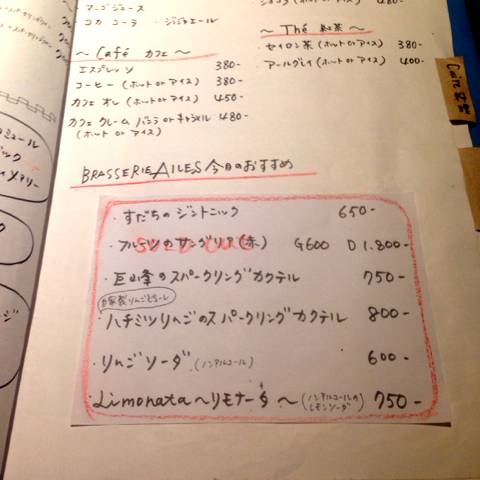 マンゴジュース
コカ コーラ ・ジンジャエール
480-
～Café カフェ～
エスプレッソ 380-
コーヒー (ホット or アイス) 380-
カフェ オレ (ホット or アイス) 450-
カフェ クレーム バニラ or キャラメル 480-
(ホット or アイス)
～ Thé 紅茶 ～
セイロン茶 (ホット or アイス) 380-
アールグレイ (ホット or アイス) 400-
BRASSERIE AILES 今日のおすすめ
・すだちの ジントニック 650-
・フルーツのサングリア(赤) G600 D 1.800-
SOLD OUT
・巨山峰のスパークリングカクテル 750-
自家製りんごビネガー
・ハチミツりんごのスパークリングカクテル 800-
・りんごソーダ (ノンアルコール) 600-
・Limonata ～リモナータ～ (ノンアルコールのレモンソーダ) 750-